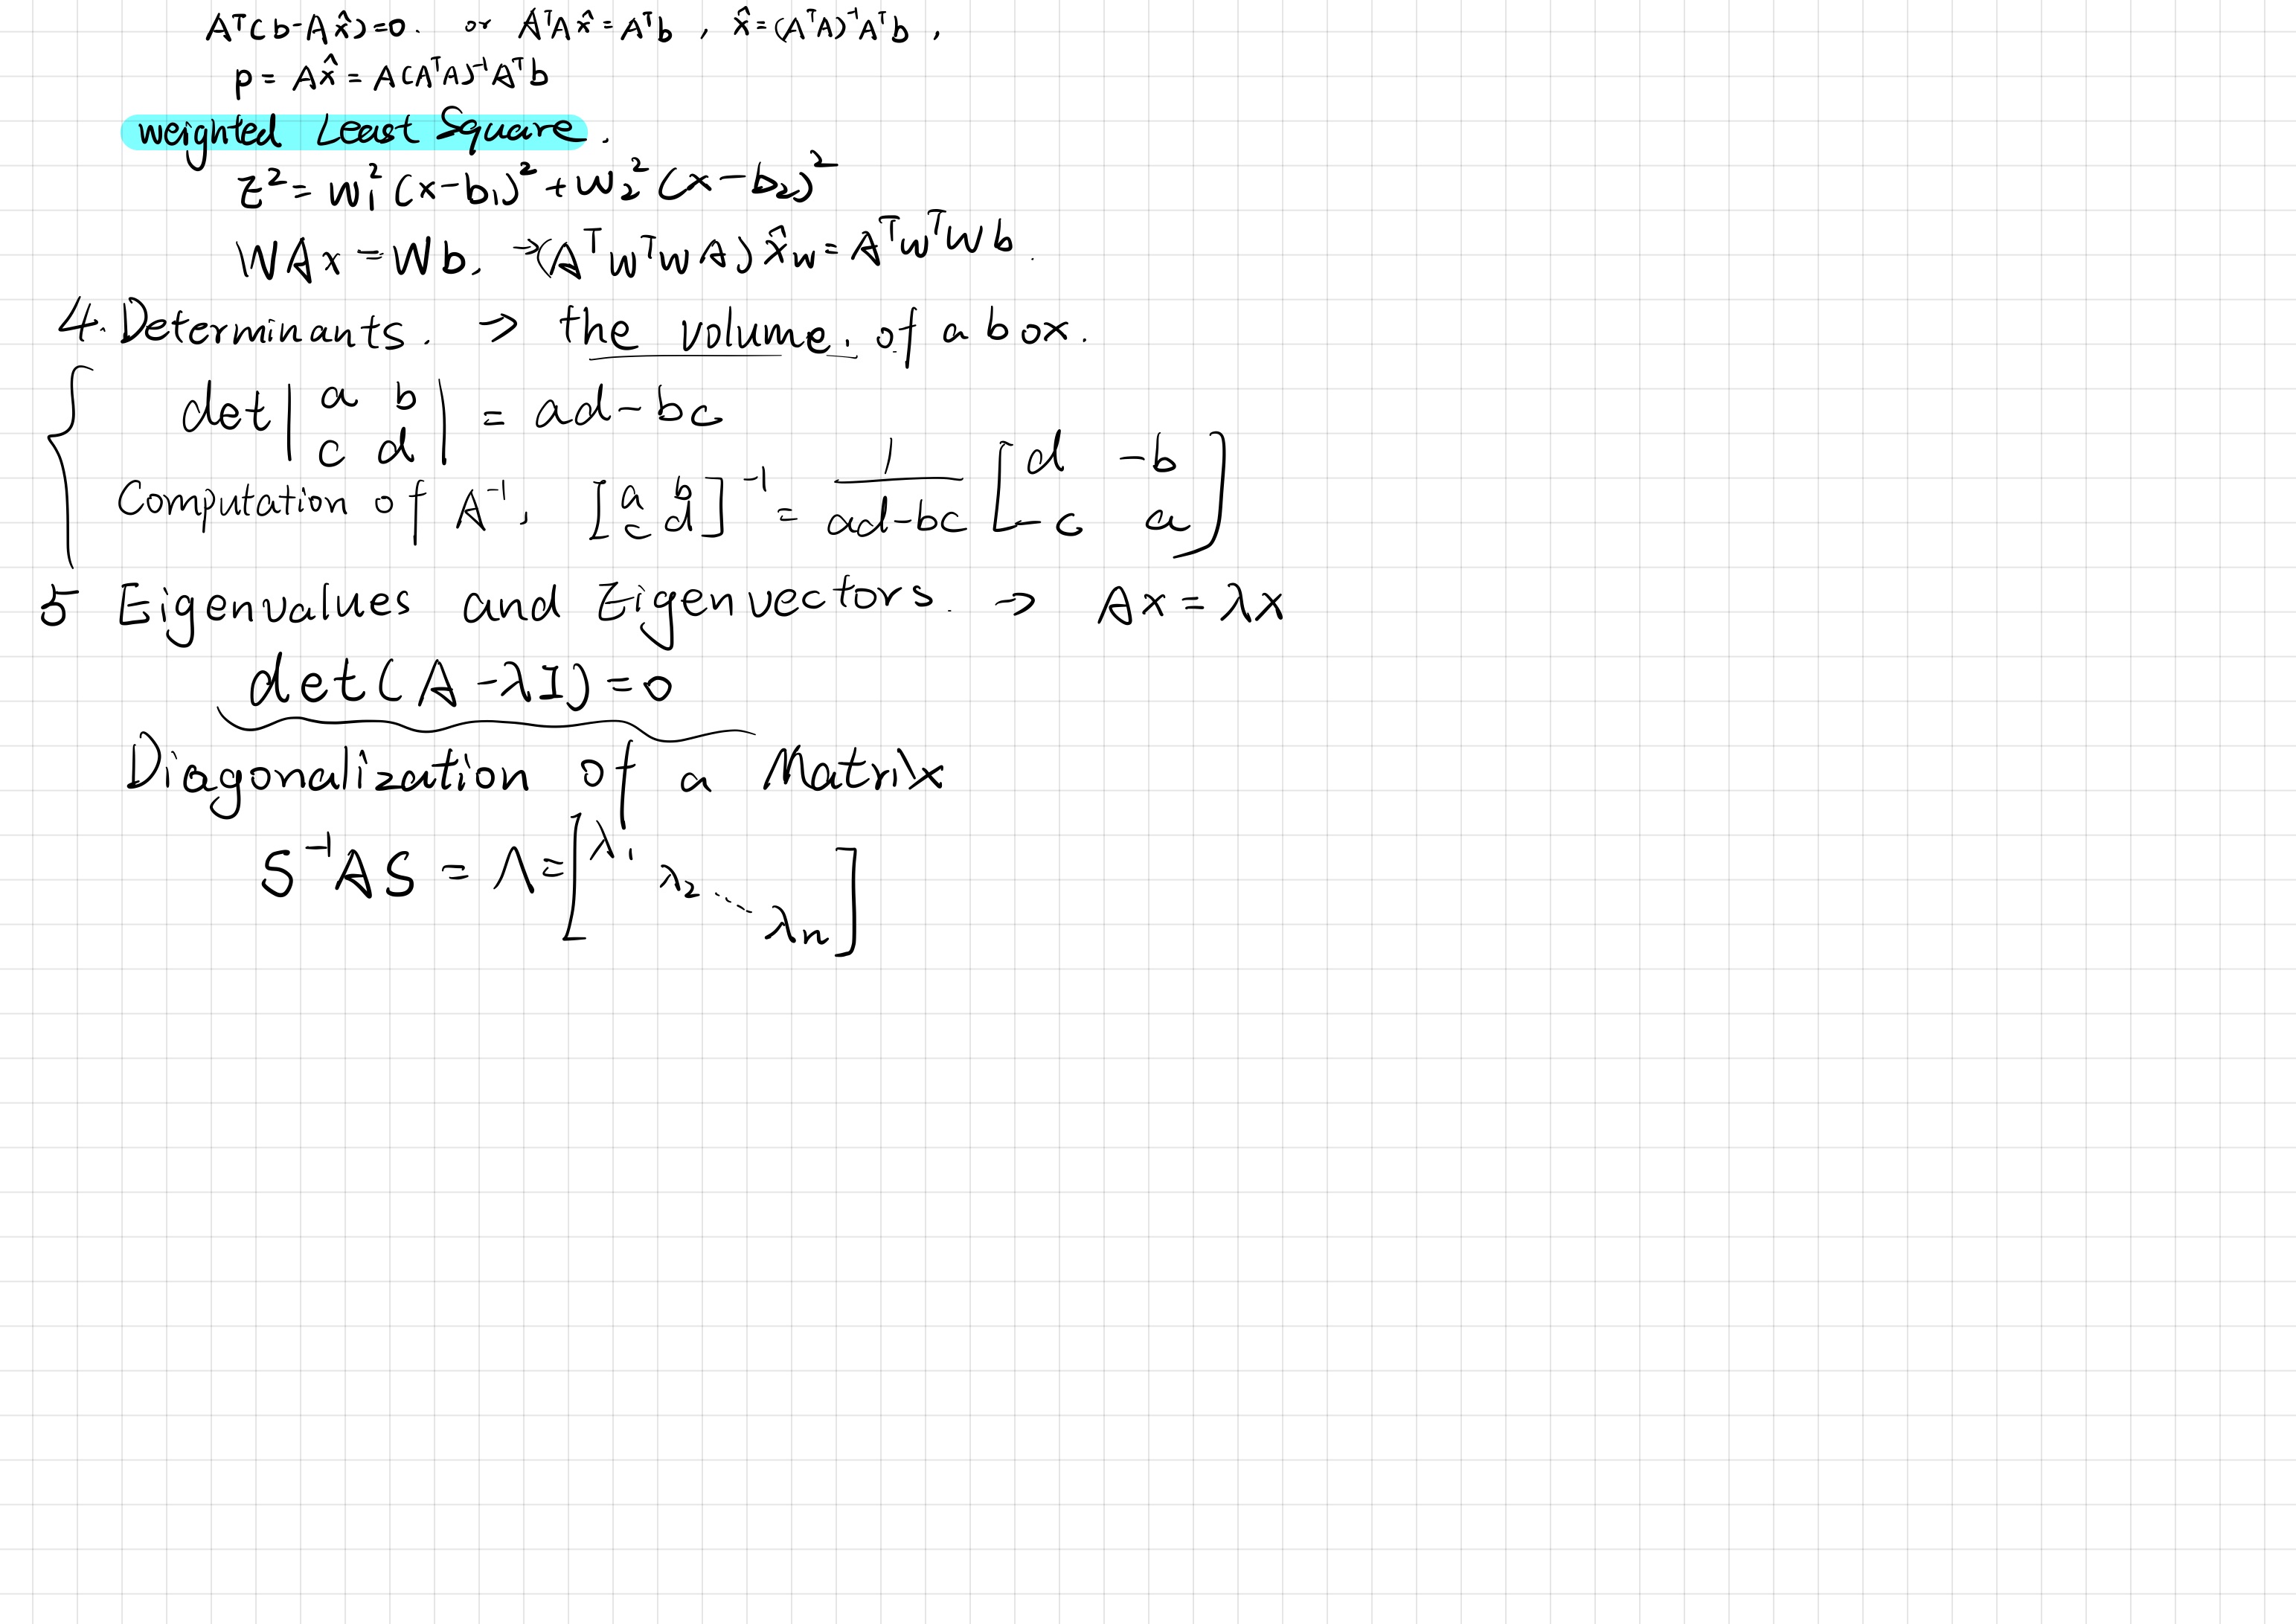 Aᵀ(b-Ax̂)=0. or AᵀAx̂=Aᵀb, x̂=(AᵀA)⁻¹Aᵀb,
p = Ax̂ = A(AᵀA)⁻¹Aᵀb
weighted Least Square.
E²= w₁²(x-b₁)²+w₂²(x-b₂)²
WAx=Wb, →(AᵀWᵀWA)x̂w=AᵀWᵀWb.
4. Determinants. ⇒ the volume. of a box.
det| a b | = ad-bc
c d
Computation of A⁻¹, [a b; c d]⁻¹ = 1/(ad-bc) [d -b; -c a]
5 Eigenvalues and Eigenvectors. → Ax=λx
det(A-λI)=0
Diagonalization of a Matrix
S⁻¹AS = Λ=[λ₁ λ₂ ... λn]